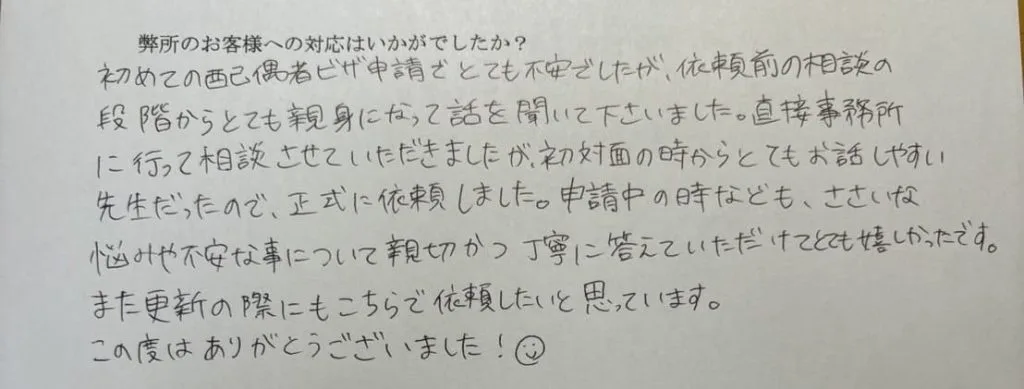 弊所のお客様への対応はいかがでしたか？
初めての配偶者ビザ申請でとても不安でしたが、依頼前の相談の
段階からとても親身になって話を聞いて下さいました。直接事務所
に行って相談させていただきましたが、初対面の時からとてもお話しやすい
先生だったので、正式に依頼しました。申請中の時なども、ささいな
悩みや不安な事について親切かつ丁寧に答えていただけてとても嬉しかったです。
また更新の際にもこちらで依頼したいと思っています。
この度はありがとうございました！☺